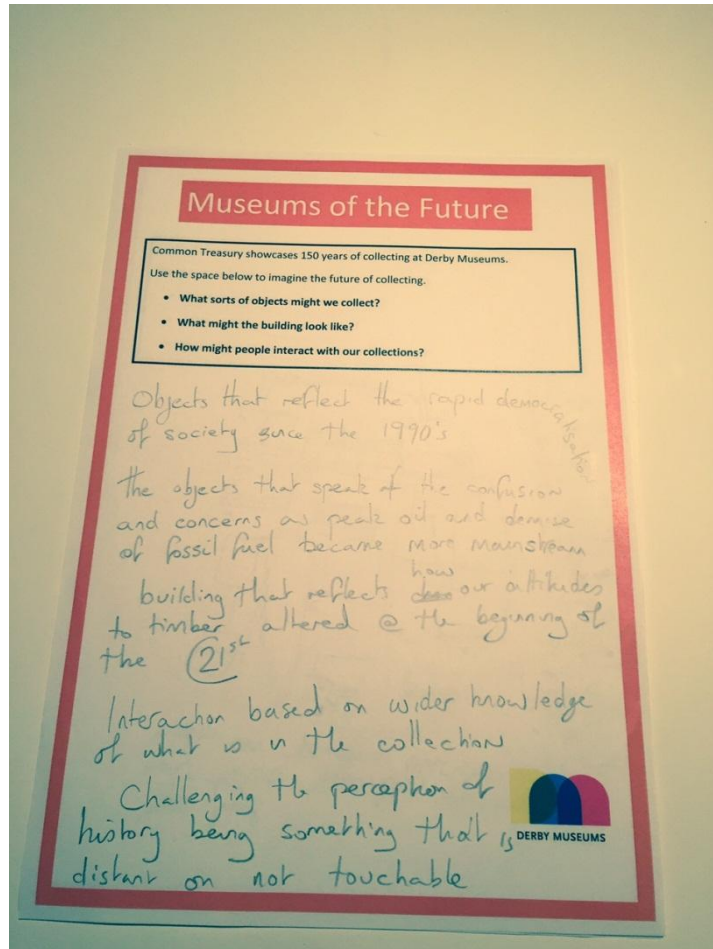 Museums of the Future
Common Treasury showcases 150 years of collecting at Derby Museums.
Use the space below to imagine the future of collecting.
• What sorts of objects might we collect?
• What might the building look like?
• How might people interact with our collections?
Objects that reflect the rapid democratisation
of society since the 1990's
The objects that speak of the confusion
and concerns as peak oil and demise
of fossil fuel became more mainstream
building that reflects how our attitudes
to timber altered @ the beginning of
the 21st
Interaction based on wider knowledge
of what is in the collection
Challenging the perception of
history being something that is
distant on not touchable
DERBY MUSEUMS